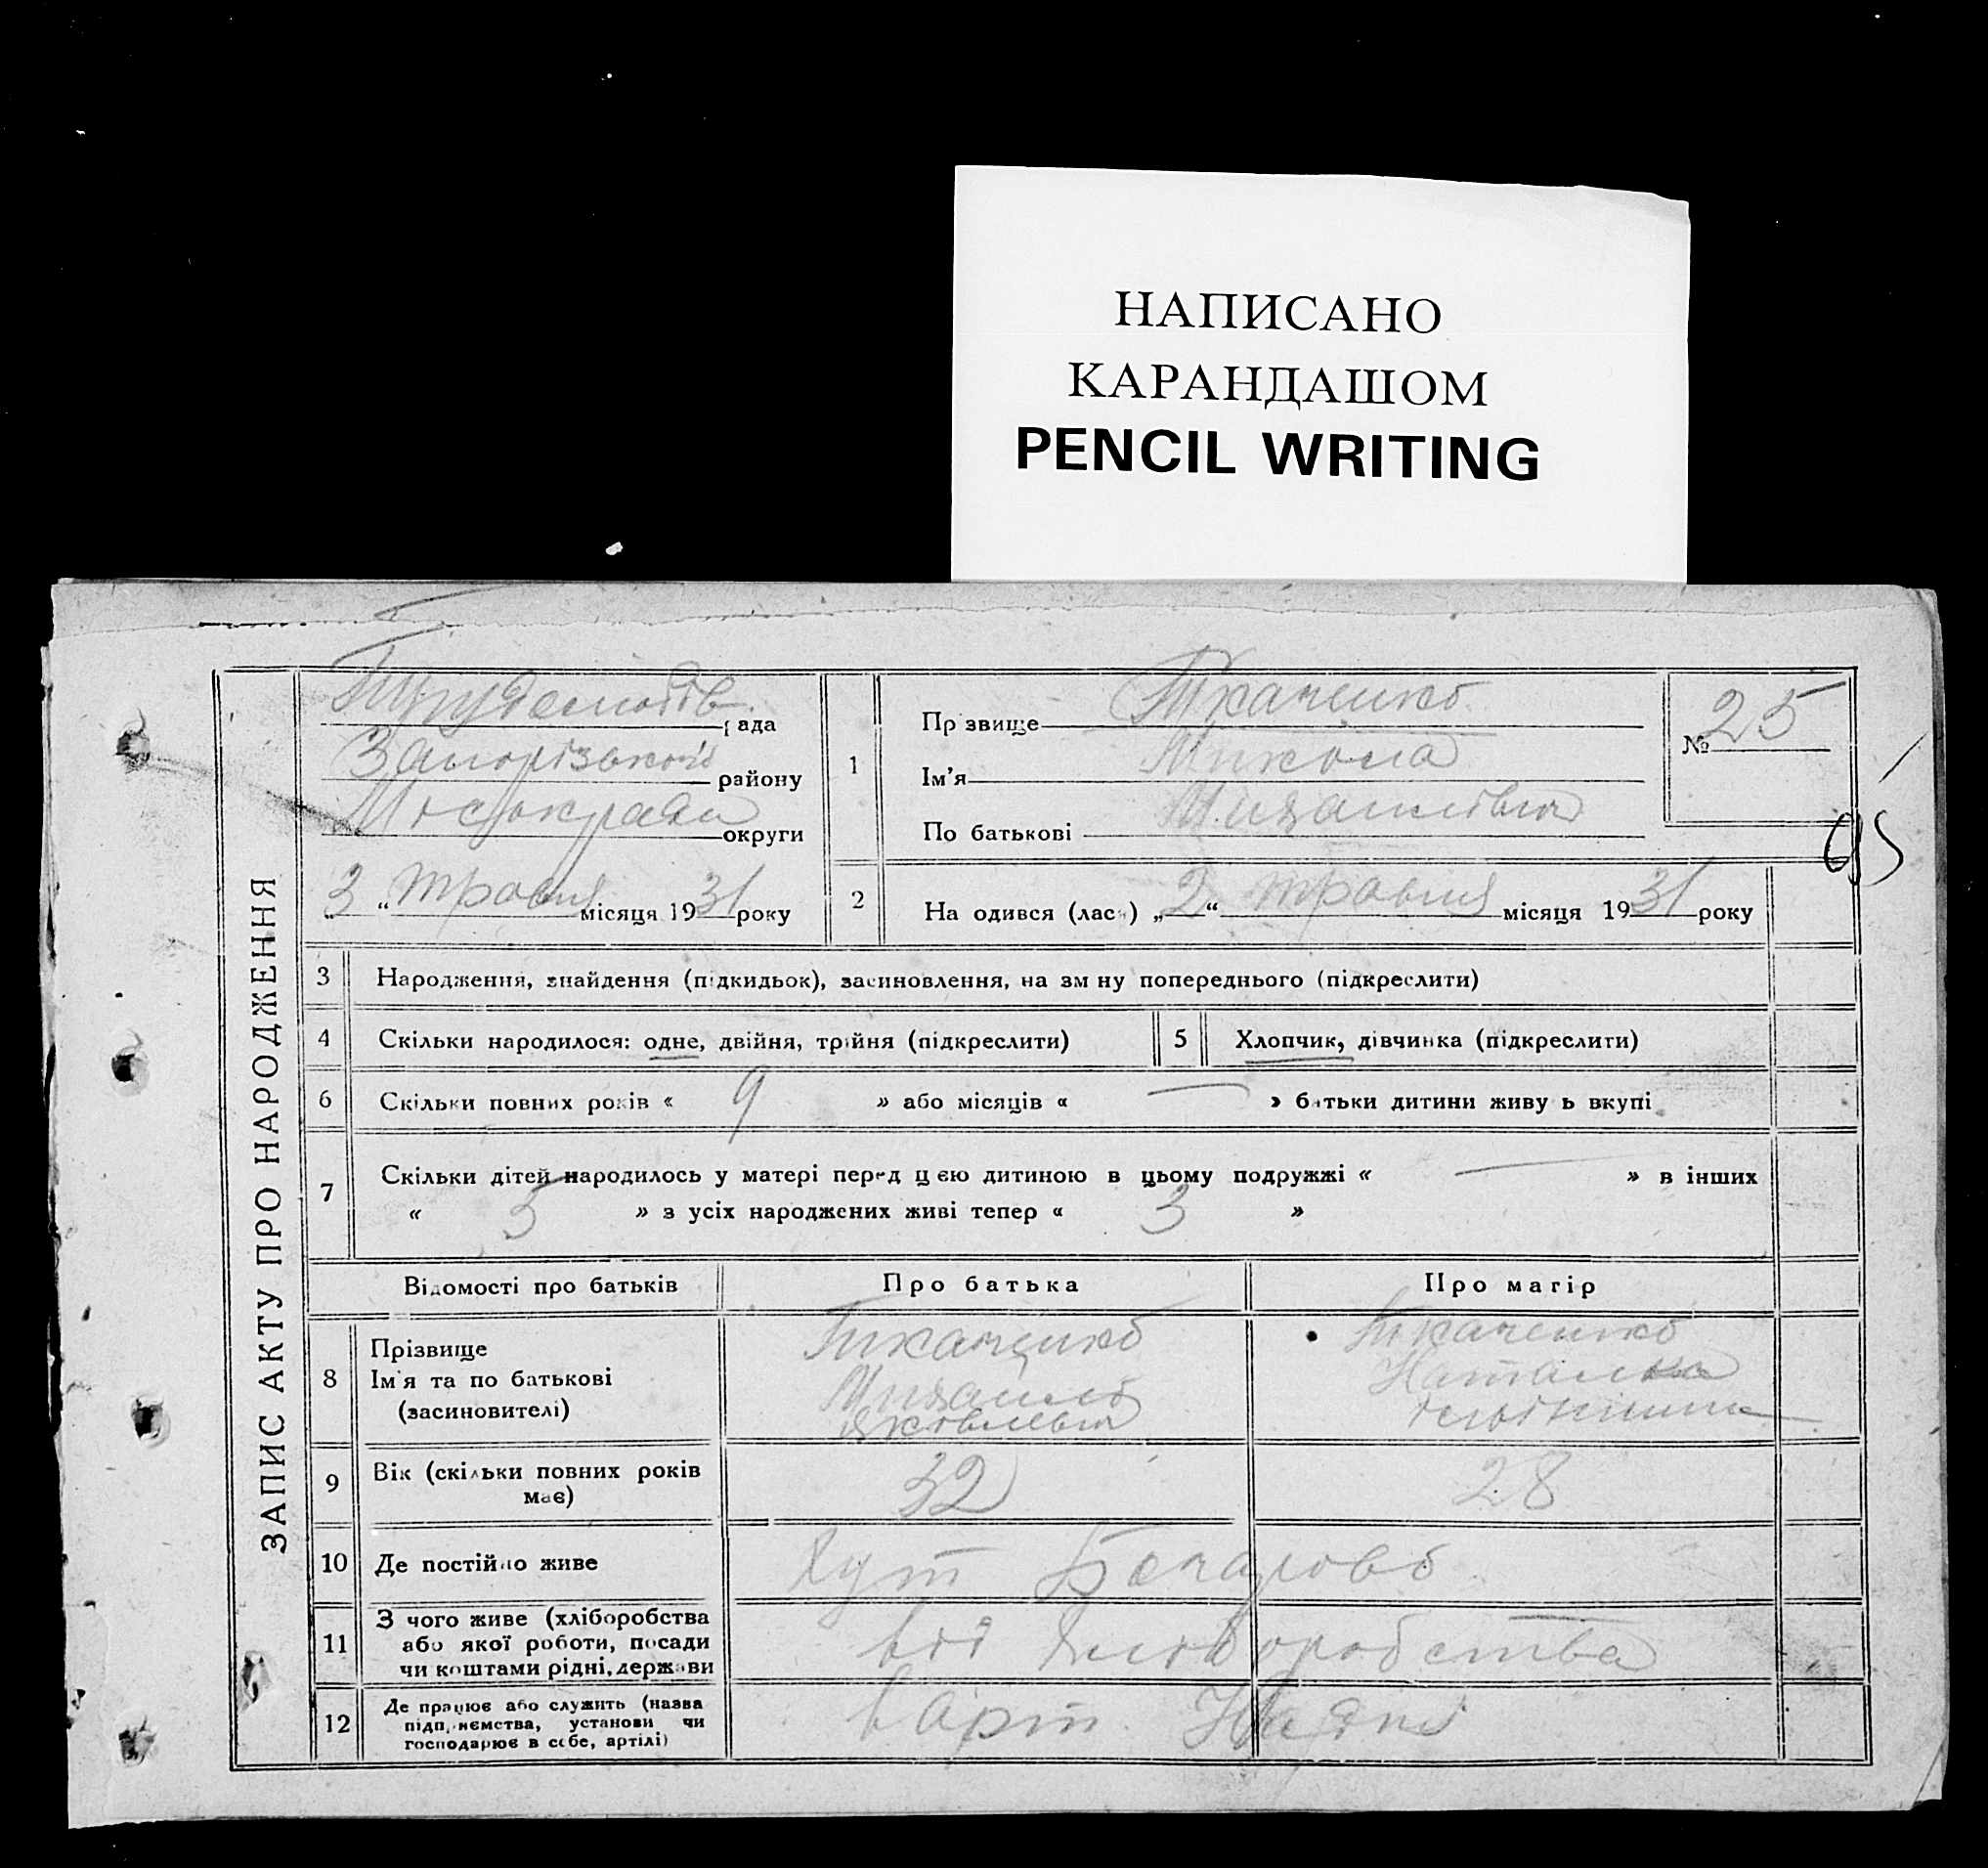 НАПИСАНО
КАРАНДАШОМ
PENCIL WRITING
ЗАПИС АКТУ ПРО НАРОДЖЕННЯ
рада
району
округи
3 " травня місяця 1931 року
1
Прізвище Ткаченко
Ім'я Микола
По батькові
№ 25
95
2
На одився (лася) „2“ травня місяця 1931 року
3 Народження, знайдення (підкидьок), засиновлення, на зміну попереднього (підкреслити)
4 Скільки народилося: одне, двійня, трійня (підкреслити)
5 Хлопчик, дівчинка (підкреслити)
6 Скільки повних років « 9 » або місяців « — » батьки дитини живуть вкупі
7 Скільки дітей народилось у матері перед цією дитиною в цьому подружжі « — » в інших
« 5 » з усіх народжених живі тепер « 3 »
Відомості про батьків Про батька Про матір
8 Прізвище
Ім'я та по батькові
(засиновителі)
Ткаченко
Яковлевич
Ткаченко
Наталка
9 Вік (скільки повних років
має)
32
28
10 Де постійно живе
Хут
11 З чого живе (хліборобства
або якої роботи, посади
чи коштами рідні, держави
від хліборобства
12 Де працює або служить (назва
підприємства, установи чи
господарює в себе, артілі)
в арт.